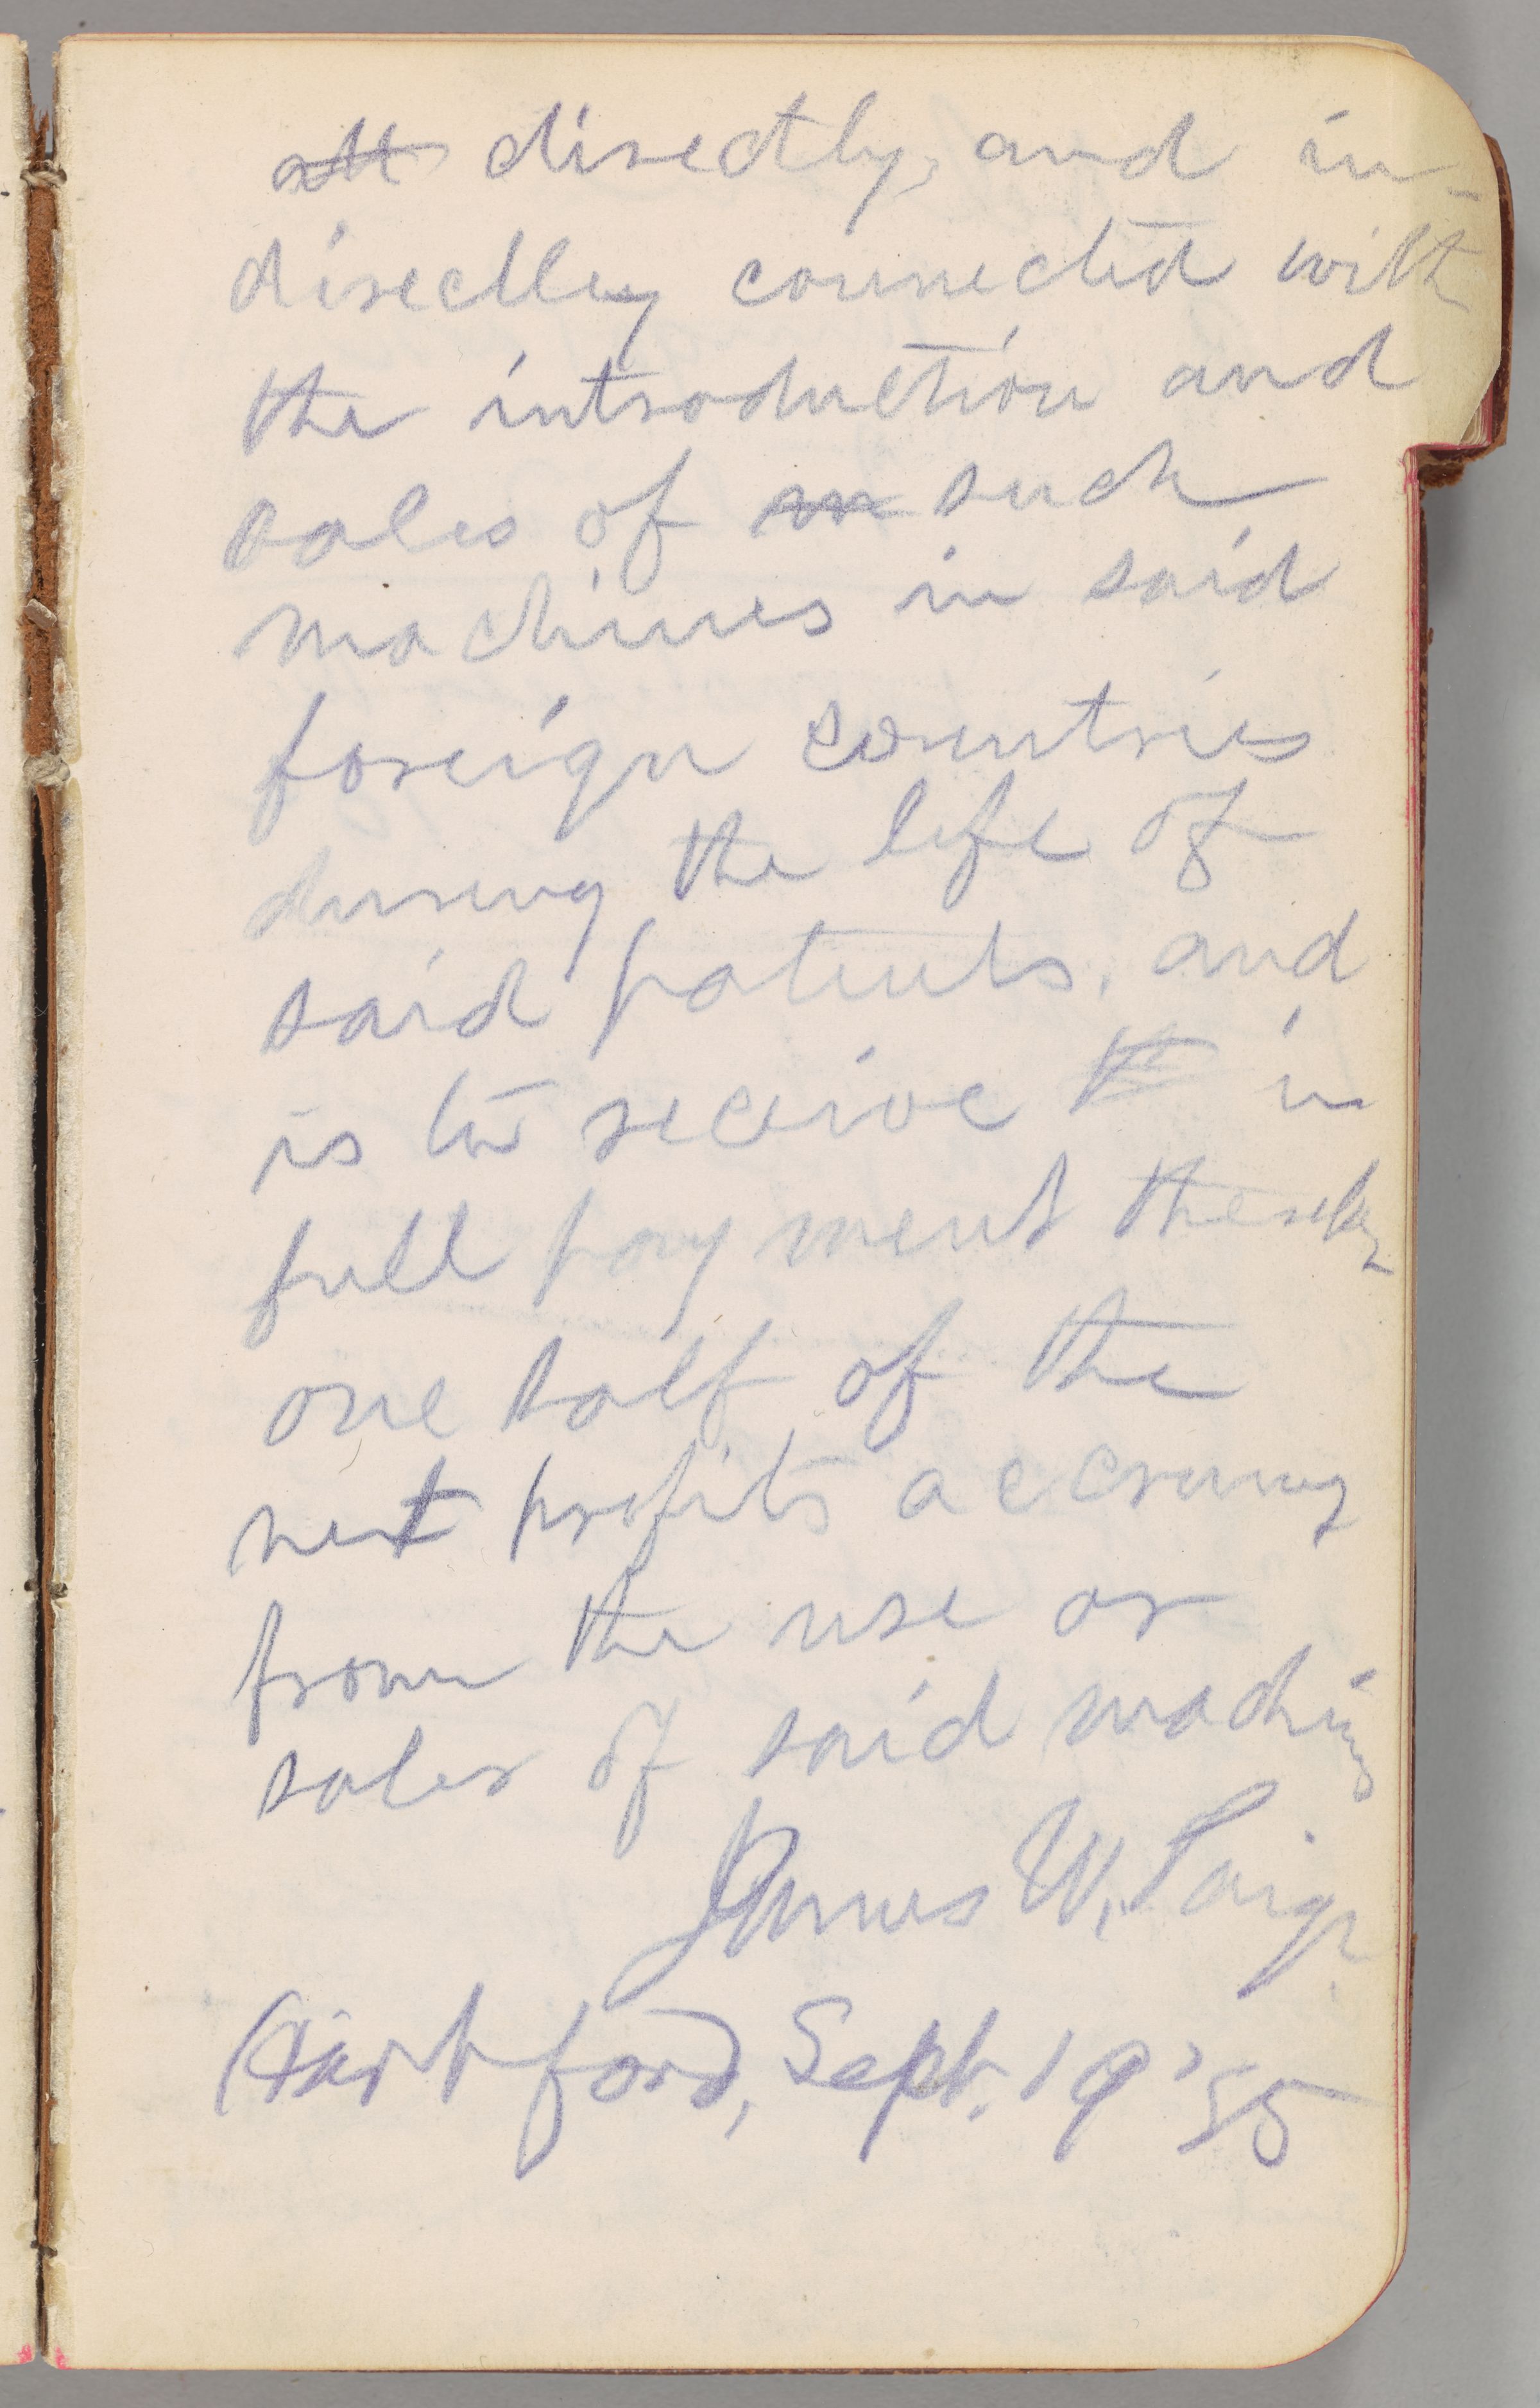 all directly, and in-
directly connected with
the introduction and
sales of m such
machines in said
foreign countries
during the life of
said patents, and
is to receive th in
full payment thereby
one half of the
net profits accruing
from the use or
sales of said machines
James W. Paige
Hartford, Sept. 19 '85